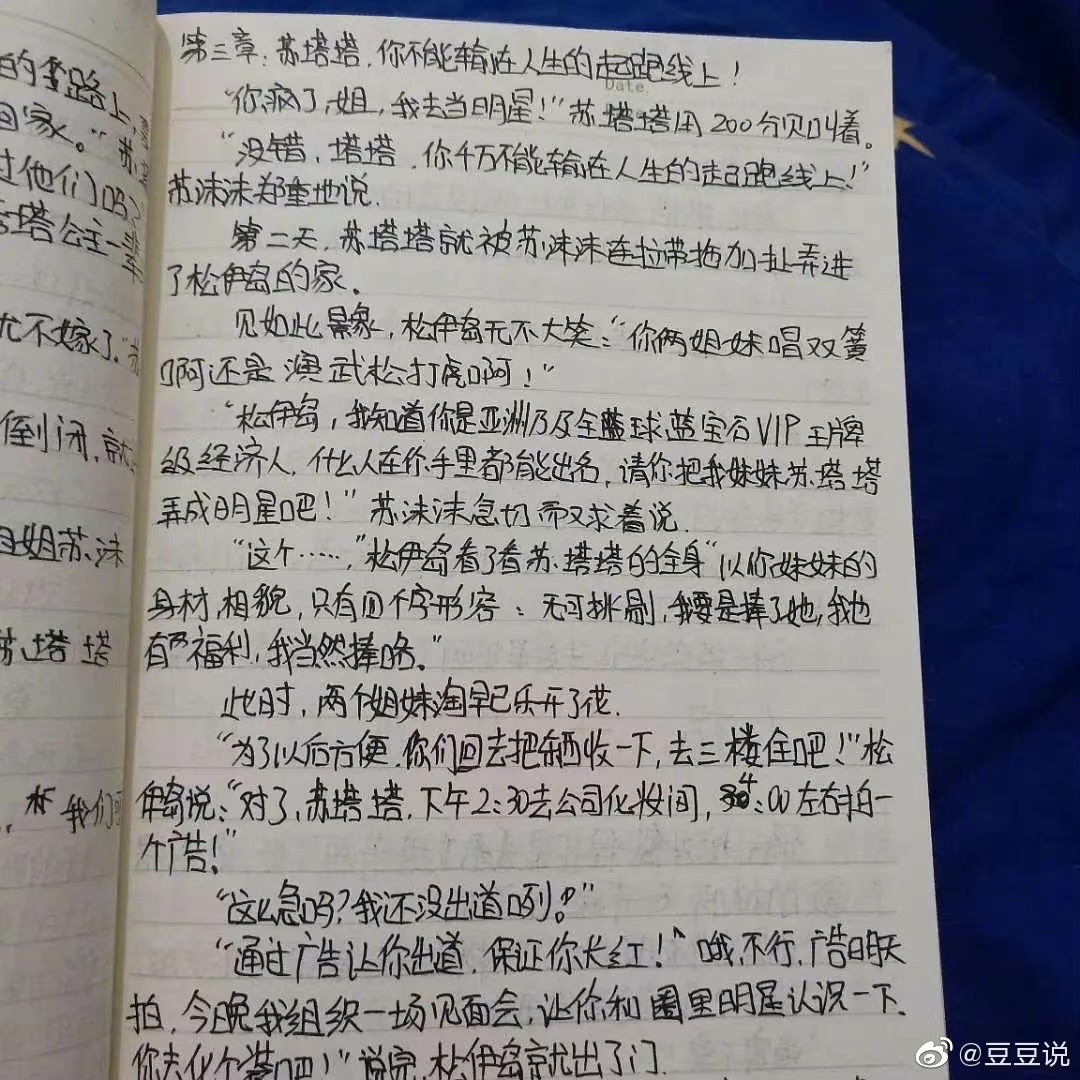 的套路上,
回家。"苏
过他们吗?
塔公主一
尤不嫁了."
倒闭,就
姐苏沫
苏塔塔
我们
第三章:苏塔塔,你不能输在人生的起跑线上!
Date.
"你疯了,姐,我去当明星!"苏塔塔用200分贝叫着。
"没错,塔塔,你千万不能输在人生的起跑线上!"
苏沫沫郑重地说.
第二天,苏塔塔就被苏沫沫连拉带拖加扯弄进
了松伊岛的家.
见如此景象,松伊岛无不大笑:"你俩姐妹唱双簧
啊还是演武松打虎啊!"
"松伊岛,我知道你是亚洲乃及全蓝球蓝宝石VIP王牌
级经济人,什么人在你手里都能出名,请你把我妹妹苏塔塔
弄成明星吧!"苏沫沫急切而又求着说.
"这个……"松伊岛看了看苏塔塔的全身"以你妹妹的
身材,相貌,只有四个字形容:无可挑剔,我要是捧了她,我也
有福利,我当然捧咯."
此时,两个姐妹淘早已乐开了花.
"为了以后方便,你们回去把东西收一下,去三楼住吧!"松
伊岛说:"对了,苏塔塔,下午2:30去公司化妆间,4:00左右拍一
个广告!"
"这么急吗?我还没出道咧。"
"通过广告让你出道,保证你长红!"哦,不行,广告明天
拍,今晚我组织一场见面会,让你和圈里明星认识一下.
你去化个装吧!"说完,松伊岛就出了门
@豆豆说